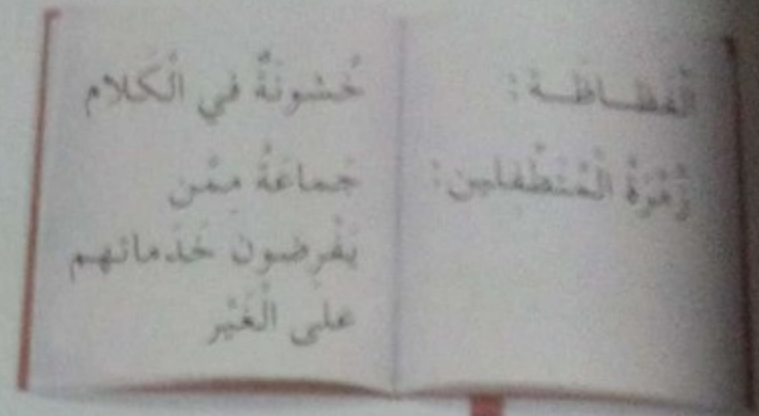 الْفَظـاظَـة: خُشونَةٌ في الْكَلام
زُمْرَةُ الْمُتَطَفِّلين: جَماعَةٌ مِمَّن
يَفْرِضونَ خَدَماتِهِم
على الْغَيْر